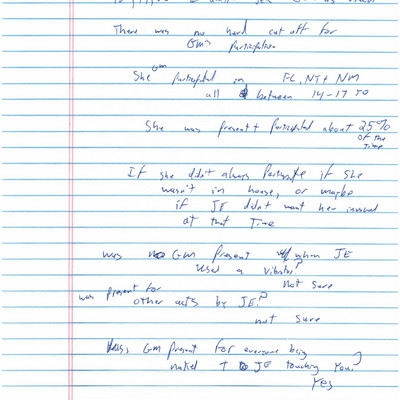 There was no hard cut off for
GM's Participation
She GM Participated in FL, NY + NM
all between 14-17 yo
She was present + Participated about 25%
of the time
If she didn't always Participate if she
wasn't in house, or maybe
if JE didn't want her involved
at that Time
was GM present when JE
used a vibrator?
Not sure
was present for
other acts by JE?
not sure
was GM present for everyone being
naked + JE touching you?
Yes